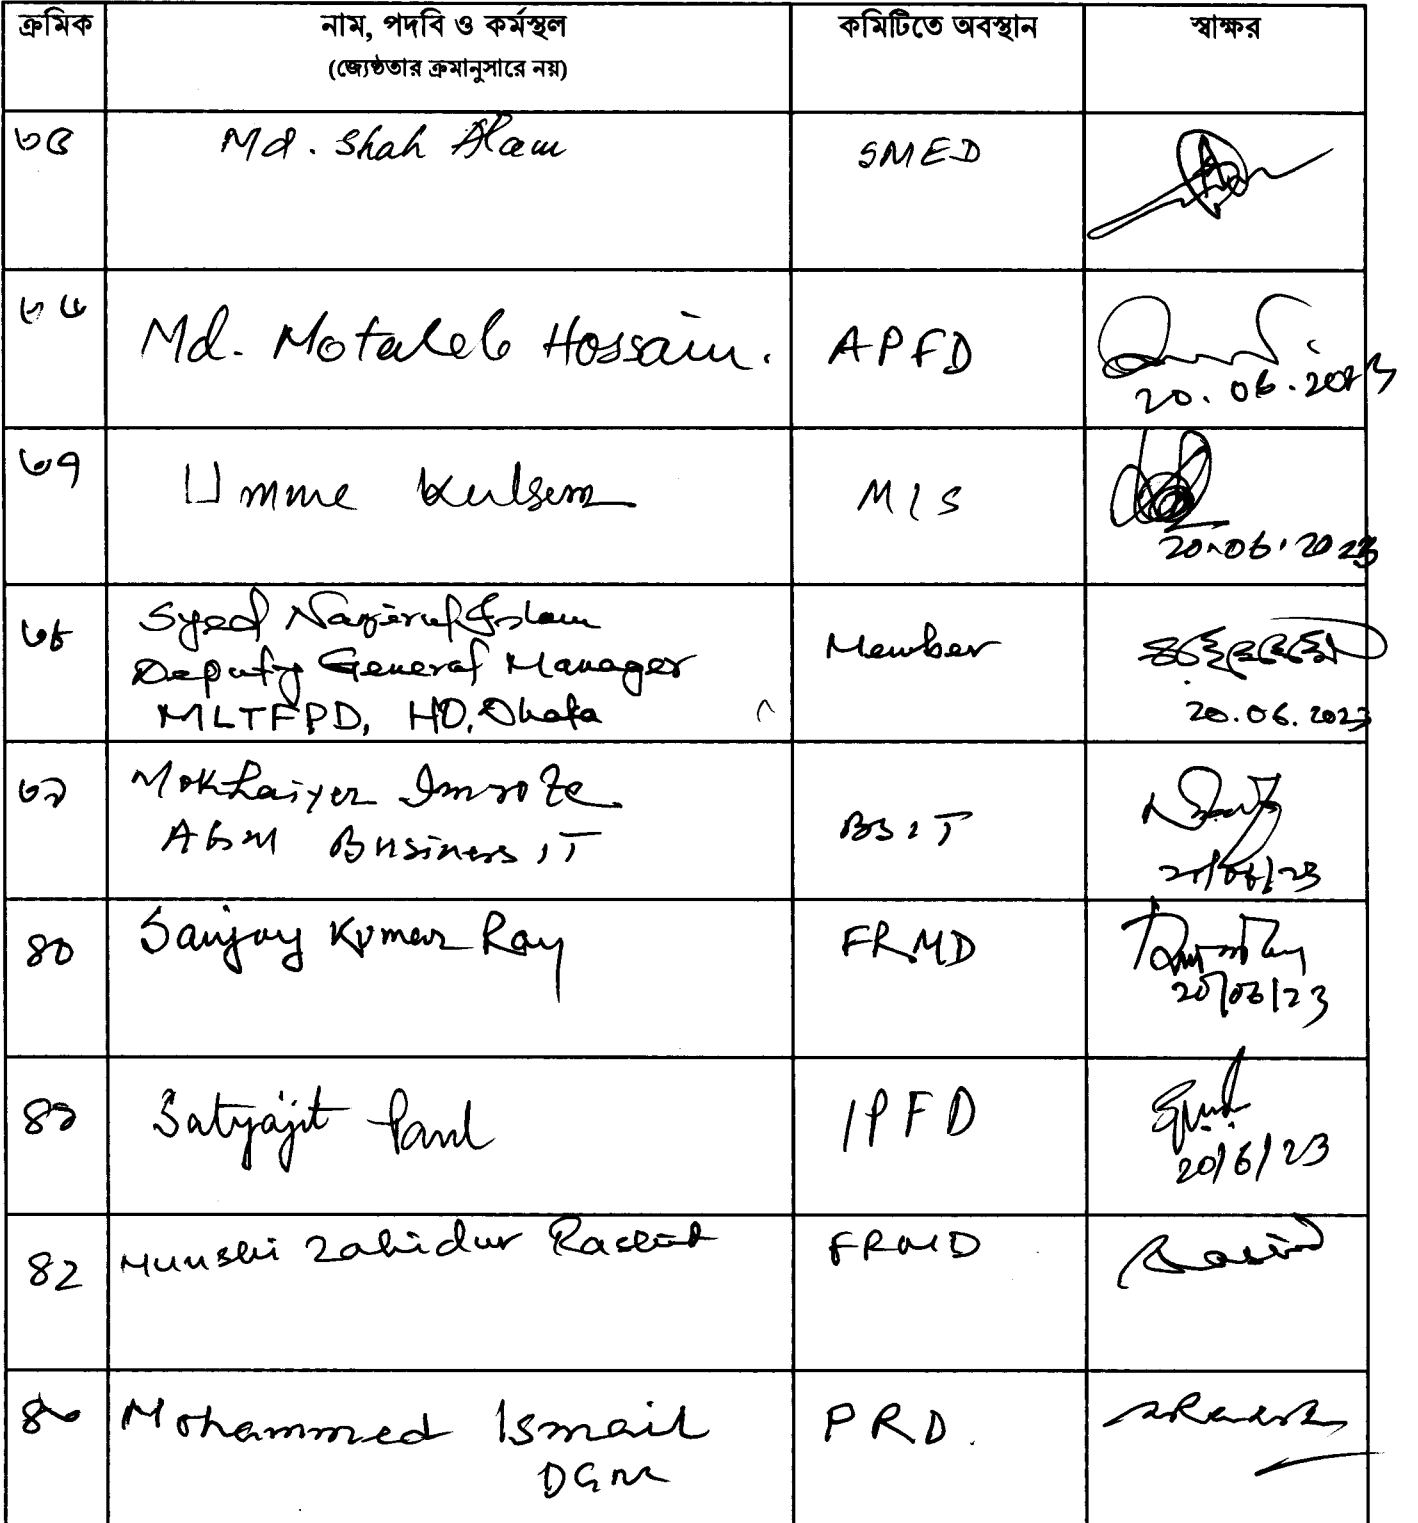 ক্রমিক নাম, পদবি ও কর্মস্থল কমিটিতে অবস্থান স্বাক্ষর
(জ্যেষ্ঠতার ক্রমানুসারে নয়)
৩৫ Md. Shah Alam SMED
৩৬ Md. Motaleb Hossain. APFD
20.06.2023
৩৭ Umme Kulsum MIS
20.06.2023
৩৮ Syed Nazirul Islam Member
Deputy General Manager
MLTFPD, HO, Dhaka 20.06.2023
৩৯ Mokhaiyer Imroze
AGM Business IT BSIT
20/06/23
৪০ Sanjoy Kumar Ray FRMD
20/06/23
৪১ Satyajit Paul IPFD
20/6/23
৪২ Munshi Zahidur Rashid FRMD
৪৩ Mohammed Ismail PRD.
DGM